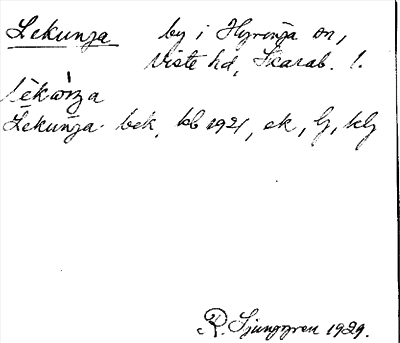 Lekunga by i Hyringa sn,
Viste hd, Skarab. l.
Lekunga bek, kb 1921, ek, lj, klj
R. Ljunggren 1929.